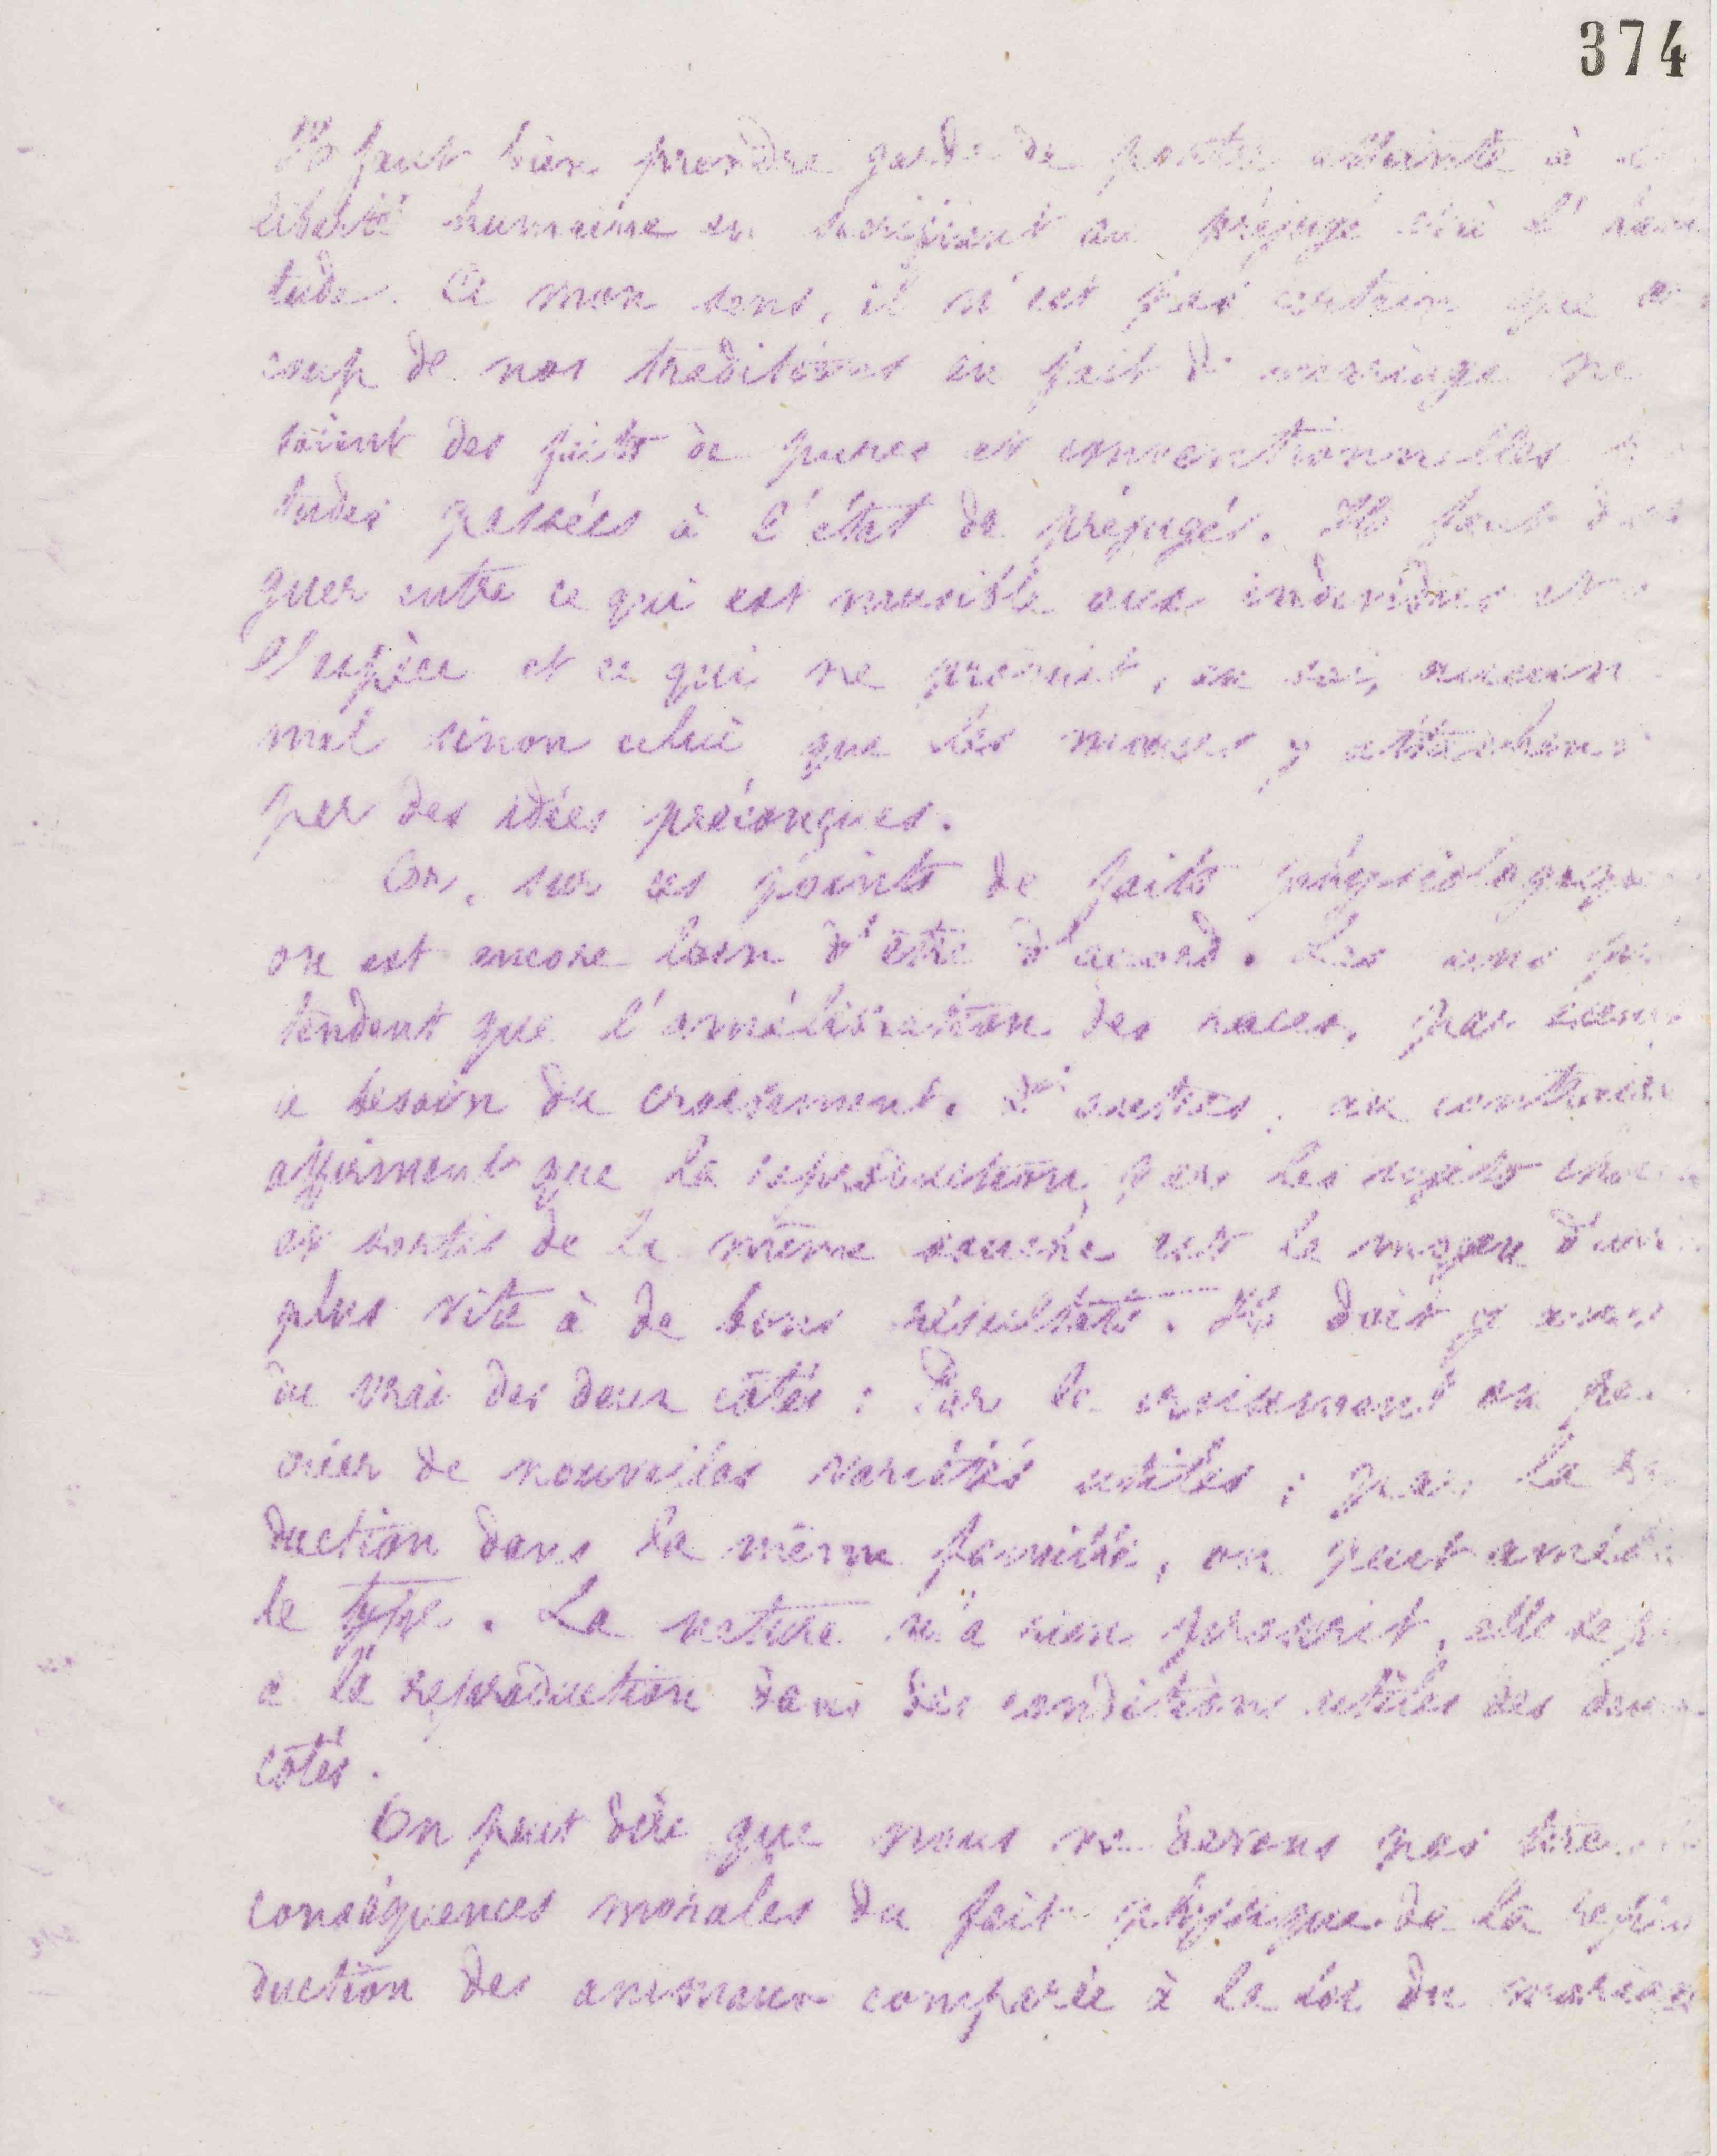 374
Il faut bien prendre garde de porter atteinte à
liberté humaine en sacrifiant au préjugé l'
tude. A mon sens, il n'est pas certain que
coup de nos traditions en fait de mariage ne
soient des faits de pures et conventionnelles
tudes passées à l'état de préjugés. Il faut
guer entre ce qui est nuisible aux individus et
l'espèce et ce qui ne produit, en soi, aucun
mal sinon celui que les moeurs y attachent
par des idées préconçues.
Or, sur ces points de faits
on est encore loin d'être d'accord. Les uns
tendent que l'amélioration des races, par
a besoin du croisement. D'autres, au contraire
affirment que la reproduction par les sujets
et sortis de la même souche est le moyen
plus vite à de bons résultats. Il doit y avoir
du vrai des deux côtés : Par le croisement on
créer de nouvelles variétés utiles ; par la
duction dans la même famille, on peut
le type. La nature n'a rien proscrit, elle se
a la reproduction dans des conditions utiles des
côtés.
On peut dire que nous ne devons pas
conséquences morales du fait physique de la
duction des animaux comparée à la loi du